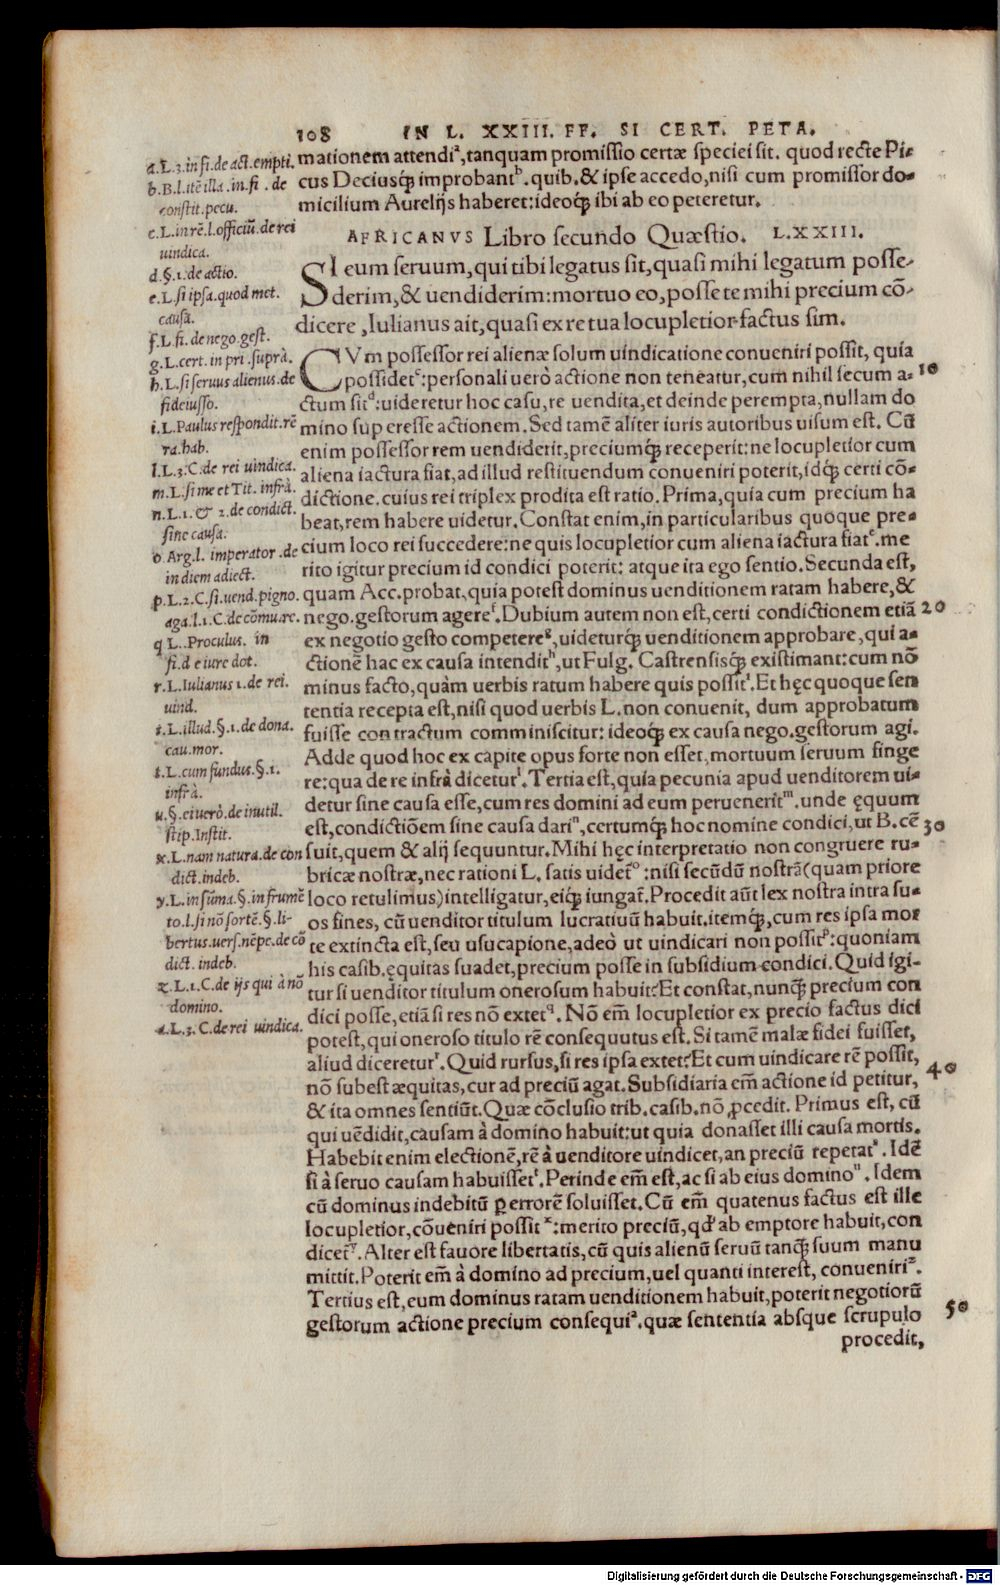 108 IN L. XXIII. FF. SI CERT. PETA.
mationem attendiᵃ, tanquam promissio certæ speciei sit. quod recte Pi-
cus Deciusq́; improbantᵇ. quib. & ipse accedo, nisi cum promissor do-
micilium Aurelijs haberet: ideoq́; ibi ab eo peteretur.
AFRICANVS Libro secundo Quæstio. L. XXIII.
SI eum seruum, qui tibi legatus sit, quasi mihi legatum posse-
derim, & uendiderim: mortuo eo, posse te mihi precium cō-
dicere, Iulianus ait, quasi ex re tua locupletior factus sim.
CVm possessor rei alienæ solum uindicatione conueniri possit, quia
possidetᶜ: personali uerò actione non teneatur, cum nihil secum a- 10
ctum sitᵈ: uideretur hoc casu, re uendita, et deinde perempta, nullam do
mino superesse actionem. Sed tamē aliter iuris autoribus uisum est. Cū
enim possessor rem uendiderit, preciumq́; receperit: ne locupletior cum
aliena iactura fiat, ad illud restituendum conueniri poterit, idq́; certi cō-
dictione. cuius rei triplex prodita est ratio. Prima, quia cum precium ha
beat, rem habere uidetur. Constat enim, in particularibus quoque pre-
cium loco rei succedere: ne quis locupletior cum aliena iactura fiatᵉ. me
rito igitur precium id condici poterit: atque ita ego sentio. Secunda est,
quam Acc. probat, quia potest dominus uenditionem ratam habere, &
nego. gestorum agereᶠ. Dubium autem non est, certi condictionem etiā 20
ex negotio gesto competereᵍ, uideturq́; uenditionem approbare, qui a-
ctionē hac ex causa intenditʰ, ut Fulg. Castrensisq́; existimant: cum nō
minus facto, quàm uerbis ratum habere quis possitⁱ. Et hęc quoque sen
tentia recepta est, nisi quod uerbis L. non conuenit, dum approbatum
fuisse contractum comminiscitur: ideoq́; ex causa nego. gestorum agi.
Adde quod hoc ex capite opus forte non esset, mortuum seruum finge
re: qua de re infrà diceturˡ. Tertia est, quia pecunia apud uenditorem ui-
detur sine causa esse, cum res domini ad eum perueneritᵐ. unde ęquum
est, condictiōem sine causa dariⁿ, certumq́; hoc nomine condici, ut B. cē 30
suit, quem & alij sequuntur. Mihi hęc interpretatio non congruere ru-
bricæ nostræ, nec rationi L. satis uidet᷑ᵒ: nisi secūdū nostrā (quam priore
loco retulimus) intelligatur, eiq́; iungat᷑. Procedit aūt lex nostra intra su-
os fines, cū uenditor titulum lucratiuū habuit. itemq́;, cum res ipsa mor
te extincta est, seu usucapione, adeò ut uindicari non possitᵖ: quoniam
his casib. ęquitas suadet, precium posse in subsidium condici. Quid igi-
tur si uenditor titulum onerosum habuit? Et constat, nunq́; precium con
dici posse, etiā si res nō extetᑫ. Nō em̄ locupletior ex precio factus dici
potest, qui oneroso titulo rē consequutus est. Si tamē malæ fidei fuisset,
aliud direreturʳ. Quid rursus, si res ipsa extet? Et cum uindicare rē possit,
nō subest æquitas, cur ad preciū agat. Subsidiaria em̄ actione id petitur, 40
& ita omnes sentiūt. Quæ cōclusio trib. casib. nō ꝓcedit. Primus est, cū
qui uēdidit, causam à domino habuit: ut quia donasset illi causa mortis.
Habebit enim electionē, rē à uenditore uindicet, an preciū repetatˢ. Idē
si à seruo causam habuissetᵗ. Perinde em̄ est, ac si ab eius dominoᵘ. Idem
cū dominus indebitū ꝑ errorē soluisset. Cū em̄ quatenus factus est ille
locupletior, cōueniri possitˣ: merito preciū, qd' ab emptore habuit, con
dicet᷑ʸ. Alter est fauore libertatis, cū quis alienū seruū tanq́; suum manu
mittit. Poterit em̄ à domino ad precium, uel quanti interest, conueniriᶻ.
Tertius est, cum dominus ratam uenditionem habuit, poterit negotiorū 50
gestorum actione precium consequiᵃ. quæ sententia absque scrupulo
procedit,
a. L.3. in fi. de act. empti.
b. B. l. itē illa. in. fi. de
constit. pecu.
c. L. in rē. l. officiū. de rei
uindica.
d. §.1. de actio.
e. L. si ipsa. quod met.
causa.
f. L. fi. de nego. gest.
g. L. cert. in pri. suprà.
h. L. si seruus alienus. de
fideiusso.
i. L. Paulus respondit. rē
ra. hab.
l. L.3. C. de rei uindica.
m. L. si me et Tit. infrà.
n. L.1. & 2. de condict.
sine causa.
o. Arg. l. imperator. de
in diem adiect.
p. L.2. C. si. uend. pigno.
aga. l.1. C. de cōmu. re.
q L.. Proculus. in
fi. d e iure dot.
r. L. Iulianus 1. de rei.
uind.
s. L. illud. §.1. de dona.
cau. mor.
t. L. cum fundus. §.1.
infrà.
u. §. ei uerò. de inutil.
stip. Instit.
x. L. nam natura. de con
dict. indeb.
y. L. in sūma. §. in frumē
to. l. si nō sortē. §. li-
bertus. uers. nēpe. de cō
dict. indeb.
z. L.1. C. de ijs qui à nō
domino.
a. L.3. C. de rei uindica.
Digitalisierung gefördert durch die Deutsche Forschungsgemeinschaft - DFG